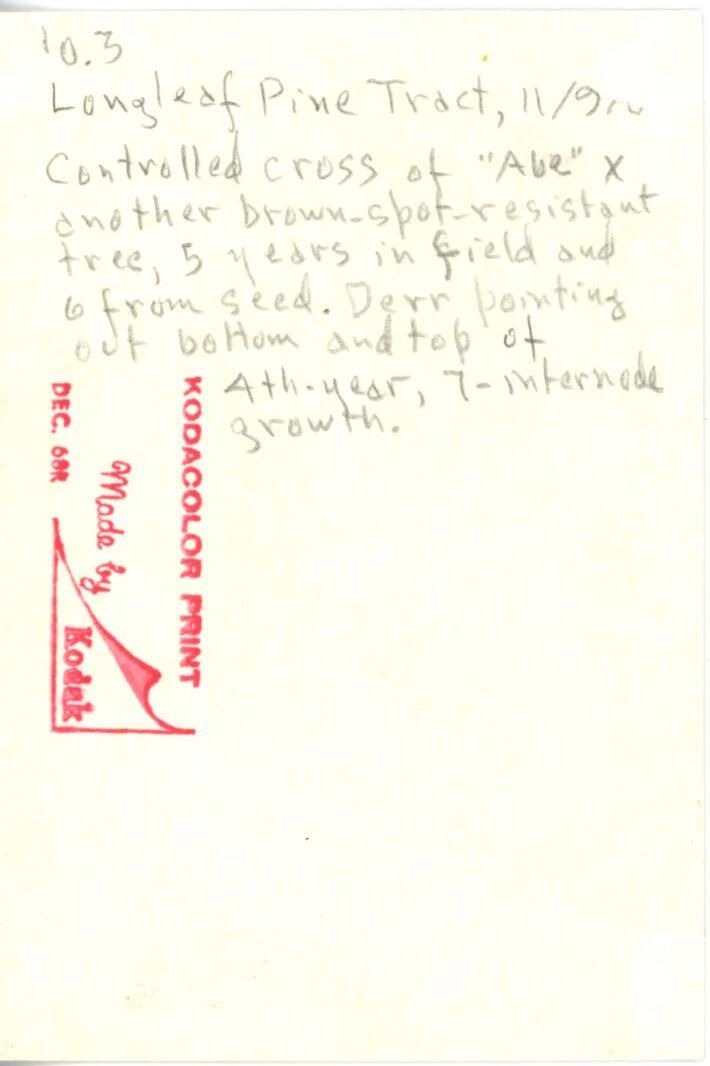 10.3
Longleaf Pine Tract, 11/9
Controlled cross of "Abe" x
another brown-spot-resistant
tree, 5 years in field and
6 from seed. Derr pointing
out bottom and top of
4th-year, 7-internode
growth.
KODACOLOR PRINT
Made by
Kodak
DEC. 68R